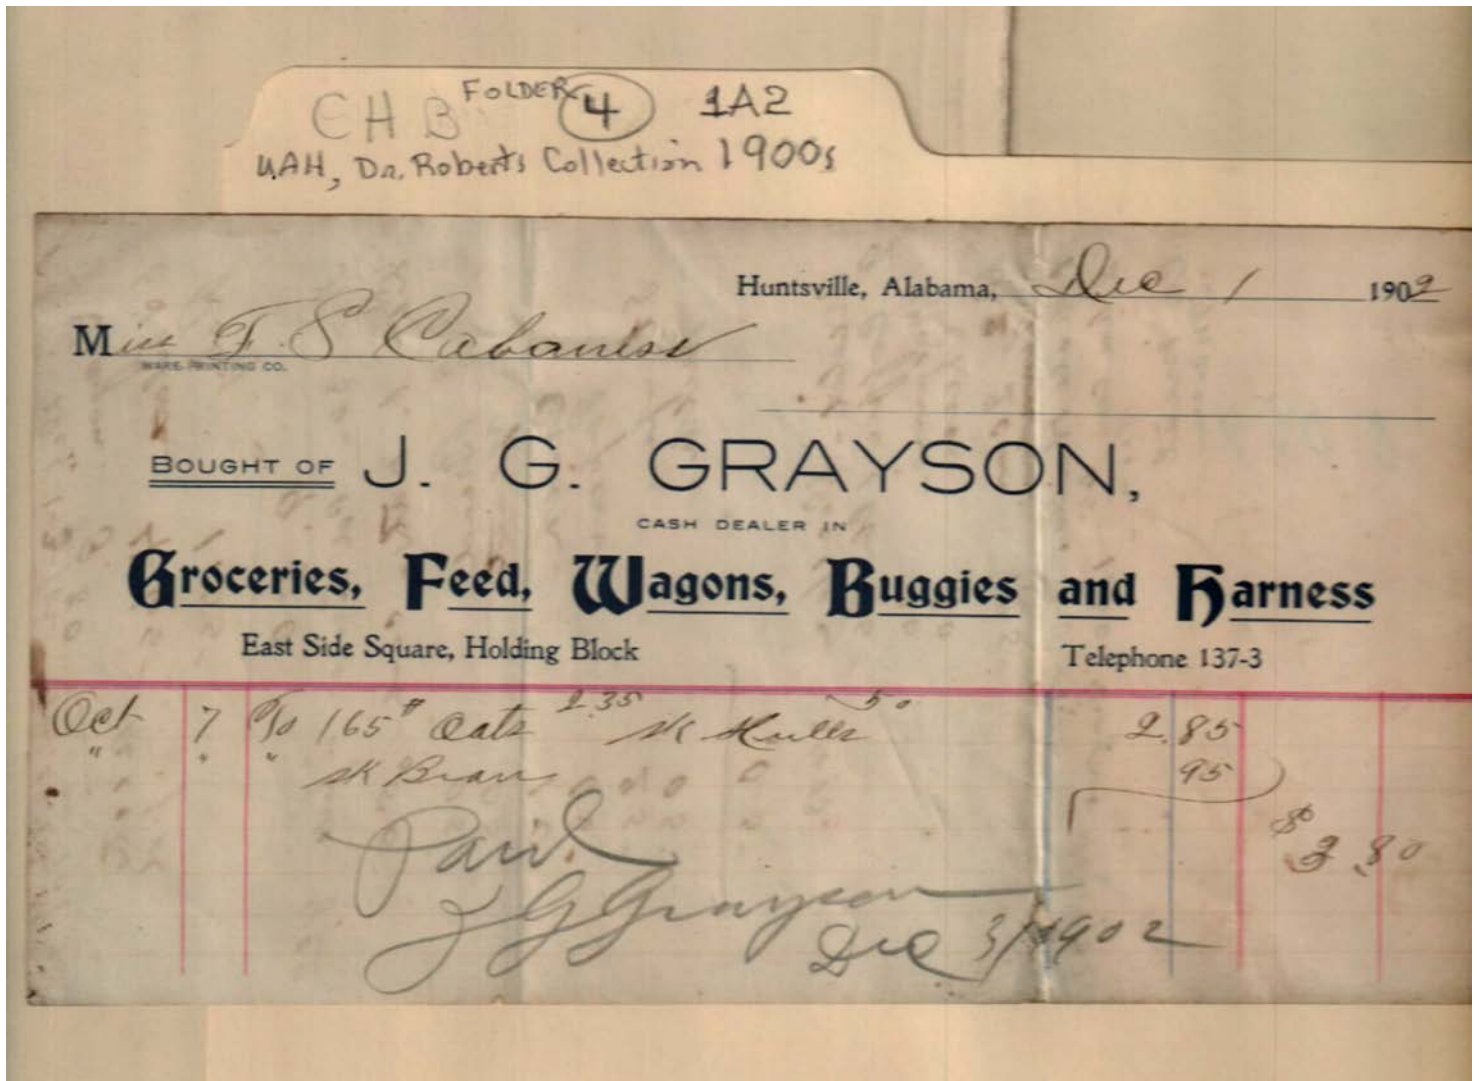 CHB FOLDER 4 1A2
UAH, Dr. Roberts Collection 1900s
Huntsville, Alabama, Dec 1 1902
Miss F. S. Cabaniss
WARE PRINTING CO.
BOUGHT OF J. G. GRAYSON,
CASH DEALER IN
Groceries, Feed, Wagons, Buggies and Harness
East Side Square, Holding Block
Telephone 137-3
Oct 7 To 165# Oats 2.35 sk Hulls 50 2.85
" " " sk Bran 95
$3.80
Paid
J G Grayson
Dec 3/1902